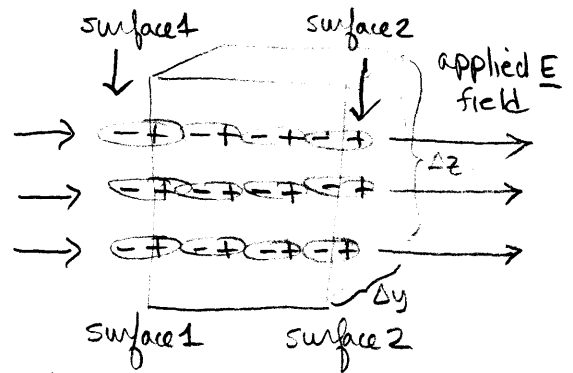 surface1
surface2
applied E
field
- + - + - + - +
Δz
- + - + - + - +
- + - + - + - +
Δy
surface1
surface2